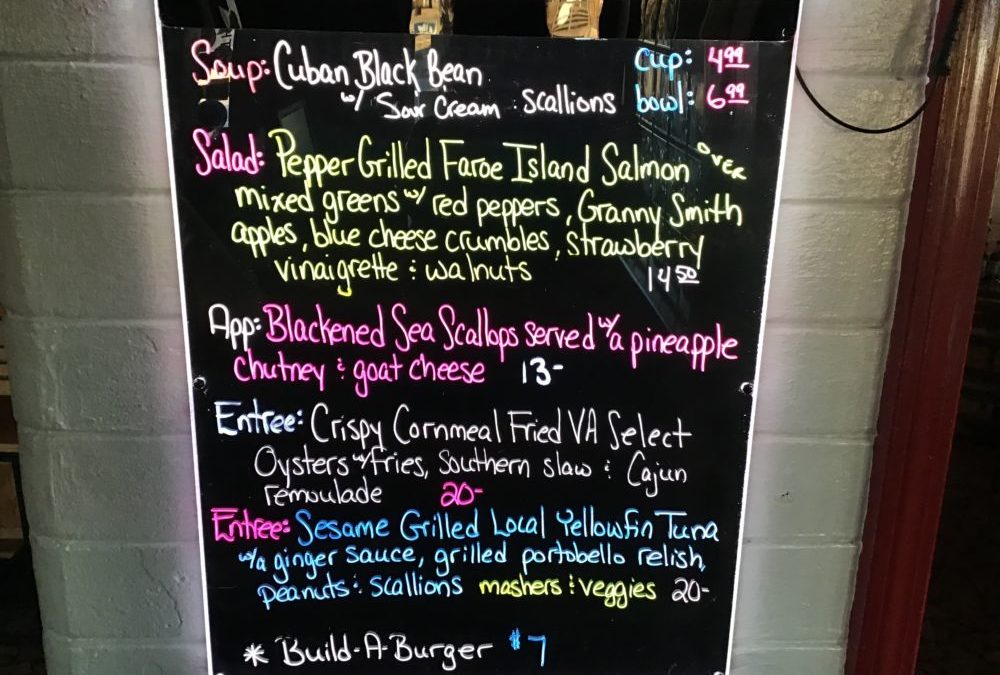 Soup: Cuban Black Bean cup: 4.99
w/ Sour Cream : scallions bowl: 6.99
Salad: Pepper Grilled Faroe Island Salmon OVER
mixed greens w/ red peppers, Granny Smith
apples, blue cheese crumbles, strawberry
vinaigrette : walnuts 14.50
App: Blackened Sea Scallops served w/a pineapple
chutney : goat cheese 13-
Entree: Crispy Cornmeal Fried VA Select
Oysters w/ fries, Southern slaw : Cajun
remoulade 20-
Entree: Sesame Grilled Local Yellowfin Tuna
w/a ginger sauce, grilled portobello relish,
peanuts : scallions mashers : veggies 20-
* Build-A-Burger $7